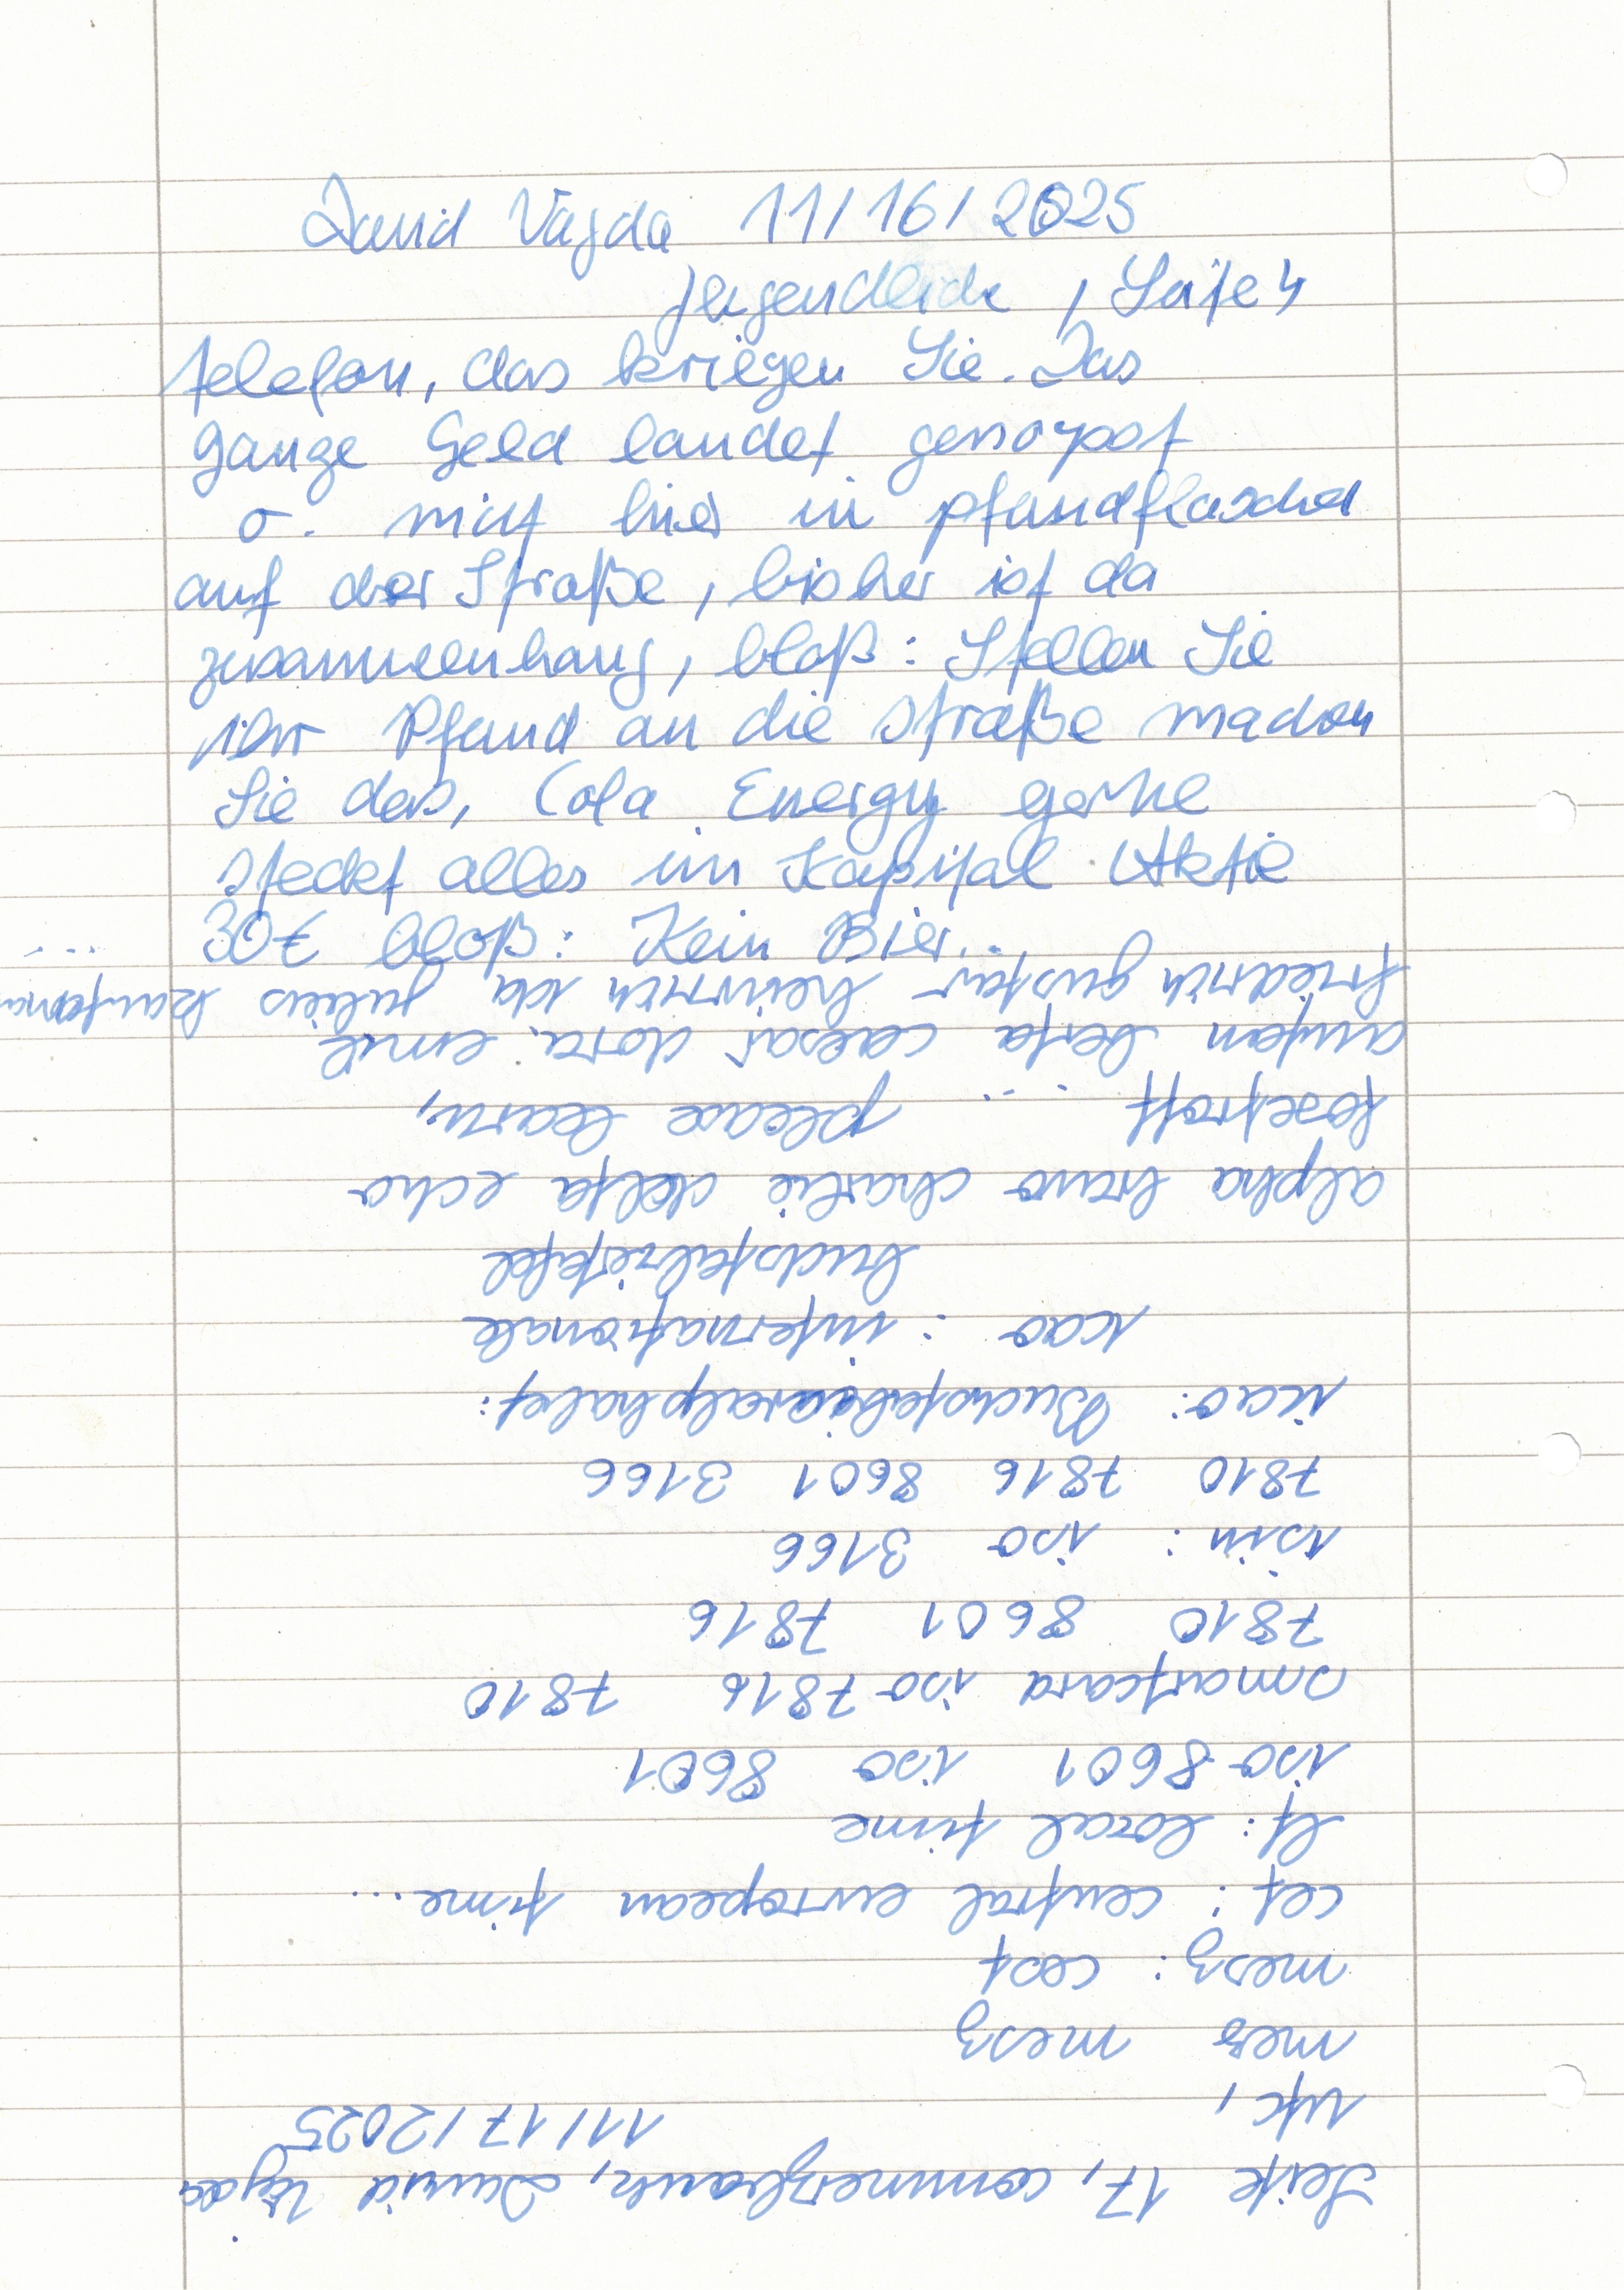 David Vajda 11/16/2025
Jugendliche, Seite 4
telefon, das kriegen Sie. Das
ganze Geld landet
o. mit hier in pfandflaschen
auf der Straße, bisher ist da
zusammenhang, bloß: Stellen Sie
ihr Pfand an die Straße machen
Sie das, Cola Energy gerne
steckt alles in Kapital Aktie
30€ bloß: Kein Bier...
Seite 17, commerzbank, David Vajda
11/17/2025
utc,
mez mesz
mesz: cest
cet: central european time...
lt: local time
iso 8601 iso 8601
smartcard iso 7816 7810
7810 8601 7816
isin: iso 3166
7810 7816 8601 3166
icao: Buchstabieralphabet:
icao: internationale
buchstabiertafel
alpha bravo charlie delta echo
foxtrott ... please learn,
anton berta caesar dora emil
friedrich gustav heinrich ida julius kaufmann
...